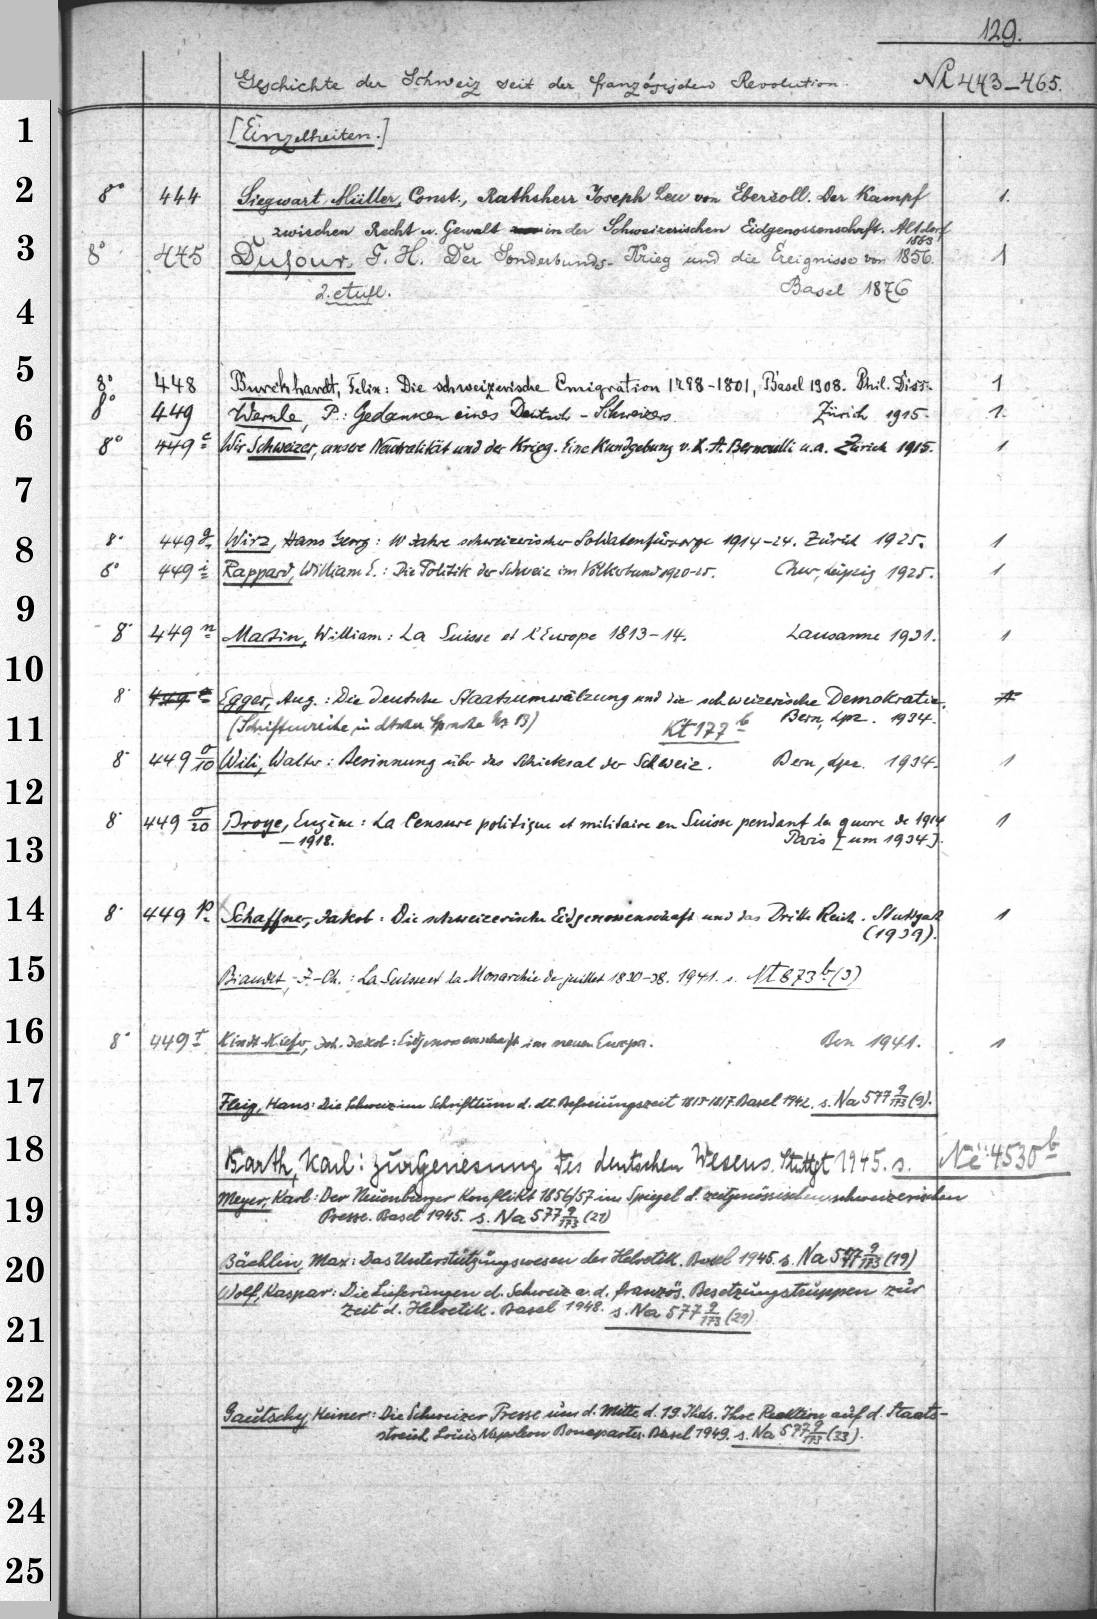 129.
Geschichte der Schweiz seit der französischen Revolution. NR 443-465.
1
[Einzelheiten.]
2
8° 444 Siegwart Müller, Const., Rathsherr Joseph Leu von Ebersoll. Der Kampf 1.
zwischen Recht u. Gewalt in der Schweizerischen Eidgenossenschaft. Altdorf 1863
3
8° 445 Dufour, G. H. Der Sonderbunds-Krieg und die Ereignisse von 1856. 1
2. Aufl. Basel 1876
4
5
8° 448 Burckhardt, Felix: Die schweizerische Emigration 1798-1801, Basel 1908. Phil. Diss. 1
8° 449 Wernle, P.: Gedanken eines Deutsch-Schweizers. Zürich 1915. 1.
6
8° 449 c Wir Schweizer, unsere Neutralität und der Krieg. Eine Kundgebung v. C. A. Bernoulli u.a. Zürich 1915. 1
7
8
8° 449 g Wirz, Hans Georg: 10 Jahre schweizerischer Soldatenfürsorge 1914-24. Zürich 1925. 1
8° 449 i Rappard, William E.: Die Politik der Schweiz im Völkerbund 1920-25. Chur, Leipzig 1925. 1
9
8° 449 n Martin, William: La Suisse et l'Europe 1813-14. Lausanne 1931. 1
10
8° 449 Egger, Aug.: Die deutsche Staatsumwälzung und die schweizerische Demokratie.
(Schriftenreihe in dtscher Sprache Nr 13) Kt 177 b Bern, Lpz. 1934.
11
8° 449 o/10 Wili, Walter: Besinnung über das Schicksal der Schweiz. Bern, Lpz. 1934. 1
12
8° 449 o/20 Droye, Eugène: La Censure politique et militaire en Suisse pendant la guerre de 1914 1
-1918. Paris [um 1934].
13
14
8° 449 p Schaffner, Jakob: Die schweizerische Eidgenossenschaft und das Dritte Reich. Stuttgart 1
(1939).
15
Biaudet, J.-Ch.: La Suisse et la Monarchie de juillet 1830-38. 1941. s. Nt 873 b (3)
16
8° 449 r Kindt-Kiefer, Joh. Jakob: Eidgenossenschaft im neuen Europa. Bern 1941. 1
17
Fleig, Hans: Die Schweiz im Schrifttum d. dt. Befreiungszeit 1813-1817. Basel 1942. s. Na 577 9/173 (9).
18
Barth, Karl: Zur Genesung des deutschen Wesens. Stuttgt 1945. s. Ne 4530 b
19
Meyer, Karl: Der Neuenburger Konflikt 1856/57 im Spiegel d. zeitgenössischen schweizerischen
Presse. Basel 1945. s. Na 577 9/173 (21)
20
Bächlin, Max: Das Unterstützungswesen der Helvetik. Basel 1945. s. Na 577 9/173 (19)
Wolf, Kaspar: Die Lieferungen d. Schweiz a. d. französ. Besetzungstruppen zur
Zeit d. Helvetik. Basel 1948. s. Na 577 9/173 (29)
21
22
Gautschy, Heiner: Die Schweizer Presse um d. Mitte d. 19 Jhds. Ihre Reaktion auf d. Staats-
streich Louis Napoleon Bonapartes. Basel 1949. s. Na 577 9/173 (33).
23
24
25